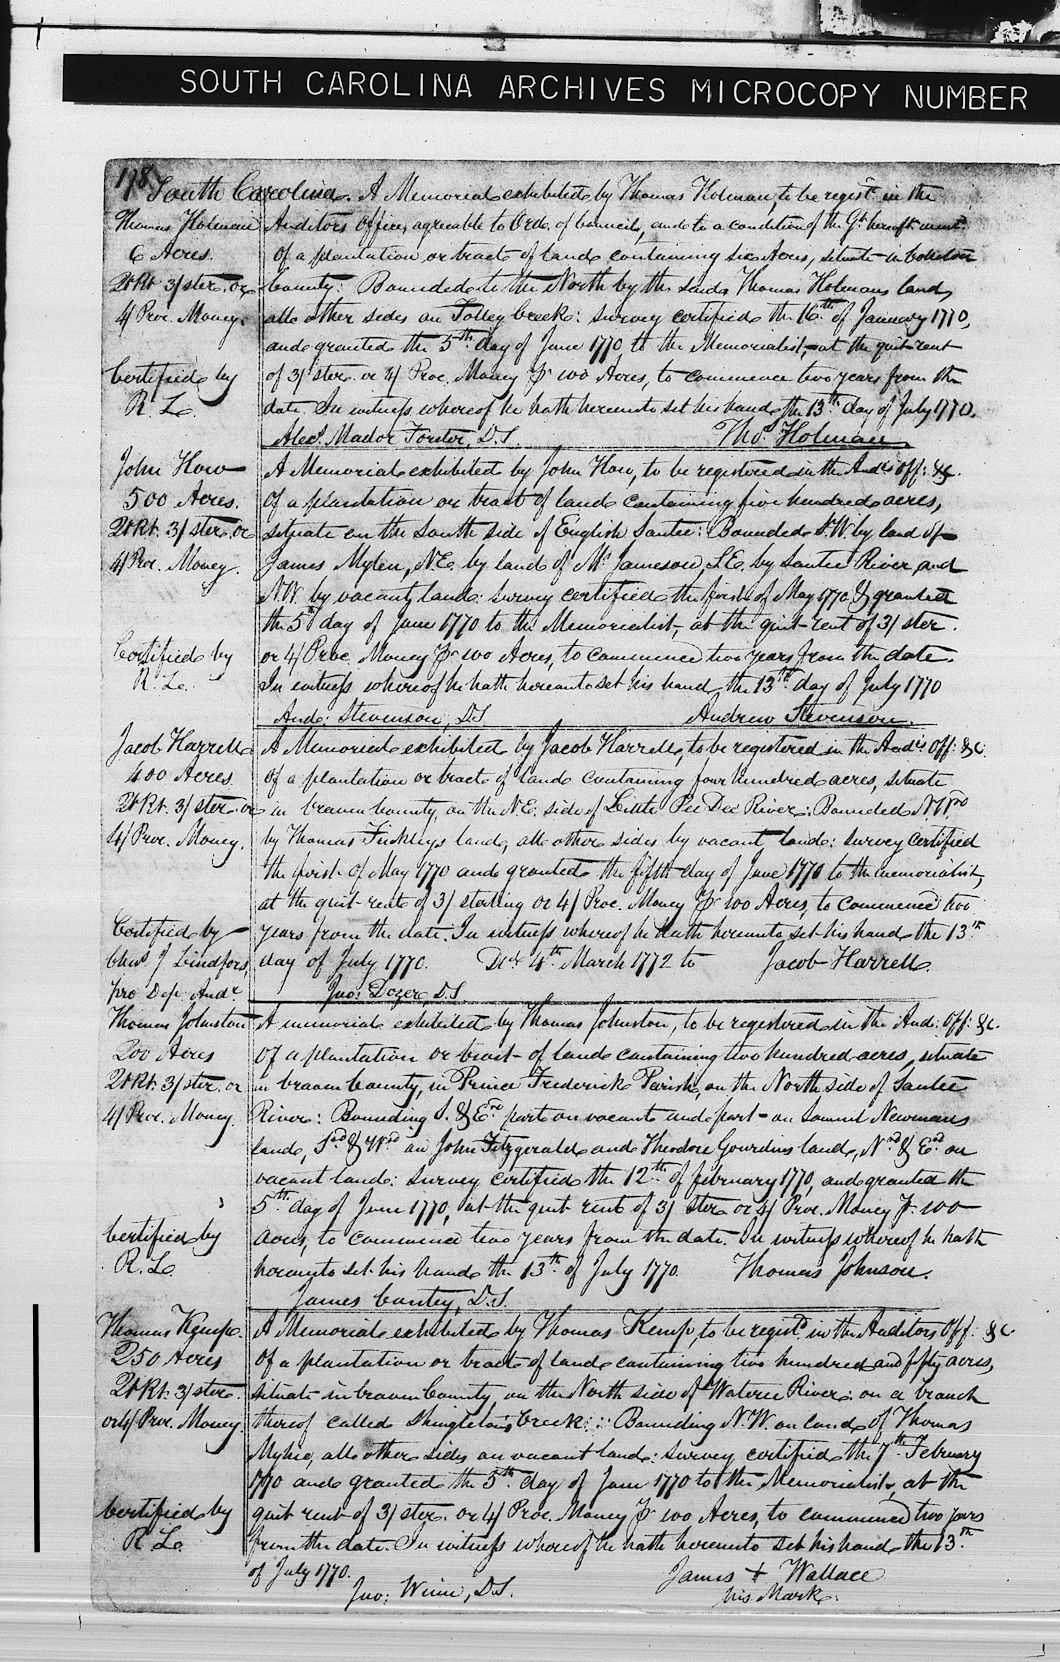 SOUTH CAROLINA ARCHIVES MICROCOPY NUMBER
178
South Carolina. A Memorial exhibited by Thomas Holman, to be regist.^d in the
Thomas Holman
6 Acres.
Qt Rt. 3/ ster. or
4/ Proc. Money.
Certified by
R. L.
Auditors Office, agreeable to Ord. of Council, and to a condition of the G^t hereaft. ment.^d
of a plantation or tract of land containing six Acres, situate in
County: Bounded to the North by the said Thomas Holmans land,
all other sides on Folley Creek: survey certified the 16^th of January 1770,
and granted the 5^th day of June 1770 to the Memorialist, at the quit rent
of 3/ ster. or 4/ Proc. Money p^r 100 Acres, to commence two years from the
date. In witness whereof he hath hereunto set his hand the 13^th day of July 1770.
Alex^r Mador Forster, D.S. Tho^s Holman
John How
500 Acres.
Qt Rt. 3/ ster. or
4/ Proc. Money.
Certified by
R. L.
A Memorial exhibited by John How, to be registered in the Aud^rs off: &c.
of a plantation or tract of land containing five hundred acres,
situate on the South side of English Santee: Bounded S.W by land of
James Mylen, N.E. by land of M^r Jameson, S.E. by Santee River and
N.W. by vacant land: survey certified the first of May 1770 & granted
the 5^th day of June 1770 to the Memorialist, at the quit rent of 3/ ster.
or 4/ Proc. Money p^r 100 Acres, to commence two years from the date.
In witness whereof he hath hereunto set his hand the 13^th day of July 1770
And: Stevenson, D.S Andrew Stevenson.
Jacob Harrell
400 Acres
Qt Rt. 3/ ster. or
4/ Proc. Money.
Certified by
Cha^s J Lindfors,
pro Dep. Aud^r
A Memorial exhibited by Jacob Harrell, to be registered in the Aud^rs Off: &c.
of a plantation or tract of land containing four hundred acres, situate
in Craven County, on the N.E. side of Little Pee Dee River: Bounded N W^rd
by Thomas land, all other sides by vacant land: survey certified
the first of May 1770 and granted the fifth day of June 1770 to the memorialist,
at the quit rent of 3/ sterling or 4/ Proc. Money p^r 100 Acres, to commence two
years from the date. In witness whereof he hath hereunto set his hand the 13^th
day of July 1770. 4^th March 1772 to Jacob Harrell.
Jno: Dozer, D.S.
Thomas Johnston
200 Acres
Qt Rt. 3/ ster. or
4/ Proc. Money.
Certified by
R. L.
A memorial exhibited by Thomas Johnston, to be registered in the Aud: off: &c.
of a plantation or tract of land containing two hundred acres, situate
in Craven County, in Prince Frederick Parish, on the North side of Santee
River: Bounding S. & E^rd part on vacant and part on Samuel Newmans
land, S^rd & W^rd on John Fitzgerald and Theodore Gourdins land, N^rd & E^rd on
vacant land: survey certified the 12^th of february 1770, and granted the
5^th day of June 1770, at the quit rent of 3/ ster or 4/ Proc. Money p^r 100
acres, to commence two years from the date. In witness whereof he hath
hereunto set his hand the 13^th of July 1770. Thomas Johnson.
James Cantey, D.S.
Thomas Kemp.
250 Acres
Qt Rt. 3/ ster.
or 4/ Proc. Money.
Certified by
R. L.
A Memorial exhibited by Thomas Kemp, to be regist^d in the Auditors Off: &c.
of a plantation or tract of land containing two hundred and fifty acres,
situate in Craven County, on the North side of Wateree River: on a branch
thereof called Shingleton's Creek: Bounding N.W. on land of Thomas
all other sides on vacant land: survey certified the 7^th February
1770 and granted the 5^th day of June 1770 to the Memorialist, at the
quit rent of 3/ ster. or 4/ Proc. Money p^r 100 Acres, to commence two years
from the date. In witness whereof he hath hereunto set his hand the 13^th
of July 1770. James + Wallace
Jno: Winn, D.S. his Mark.